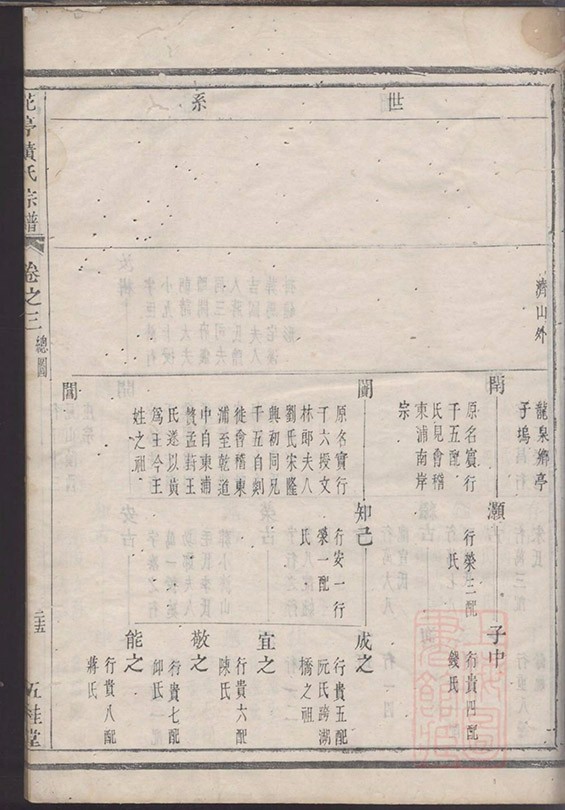 世系
濟山外
龍泉鄉亭
子塢
閈
原名賓行
千五配
氏見會稽
東浦南岸
宗
灝
行榮三配
氏
子中
行貴四配
錢氏
闓
原名實行
千六授文
林郎夫八
劉氏宋隆
興初同兄
千五自剡
徙會稽東
浦至乾道
中自東浦
贅孟葑王
氏遂以黃
為王今王
姓之祖
知己
行安一行
榮一配
氏
成之
行貴五配
阮氏跨湖
橋之祖
宜之
行貴六配
陳氏
敬之
行貴七配
仰氏
能之
行貴八配
蔣氏
誾
花亭黃氏宗譜
卷之三
總圖
二十五
五桂堂